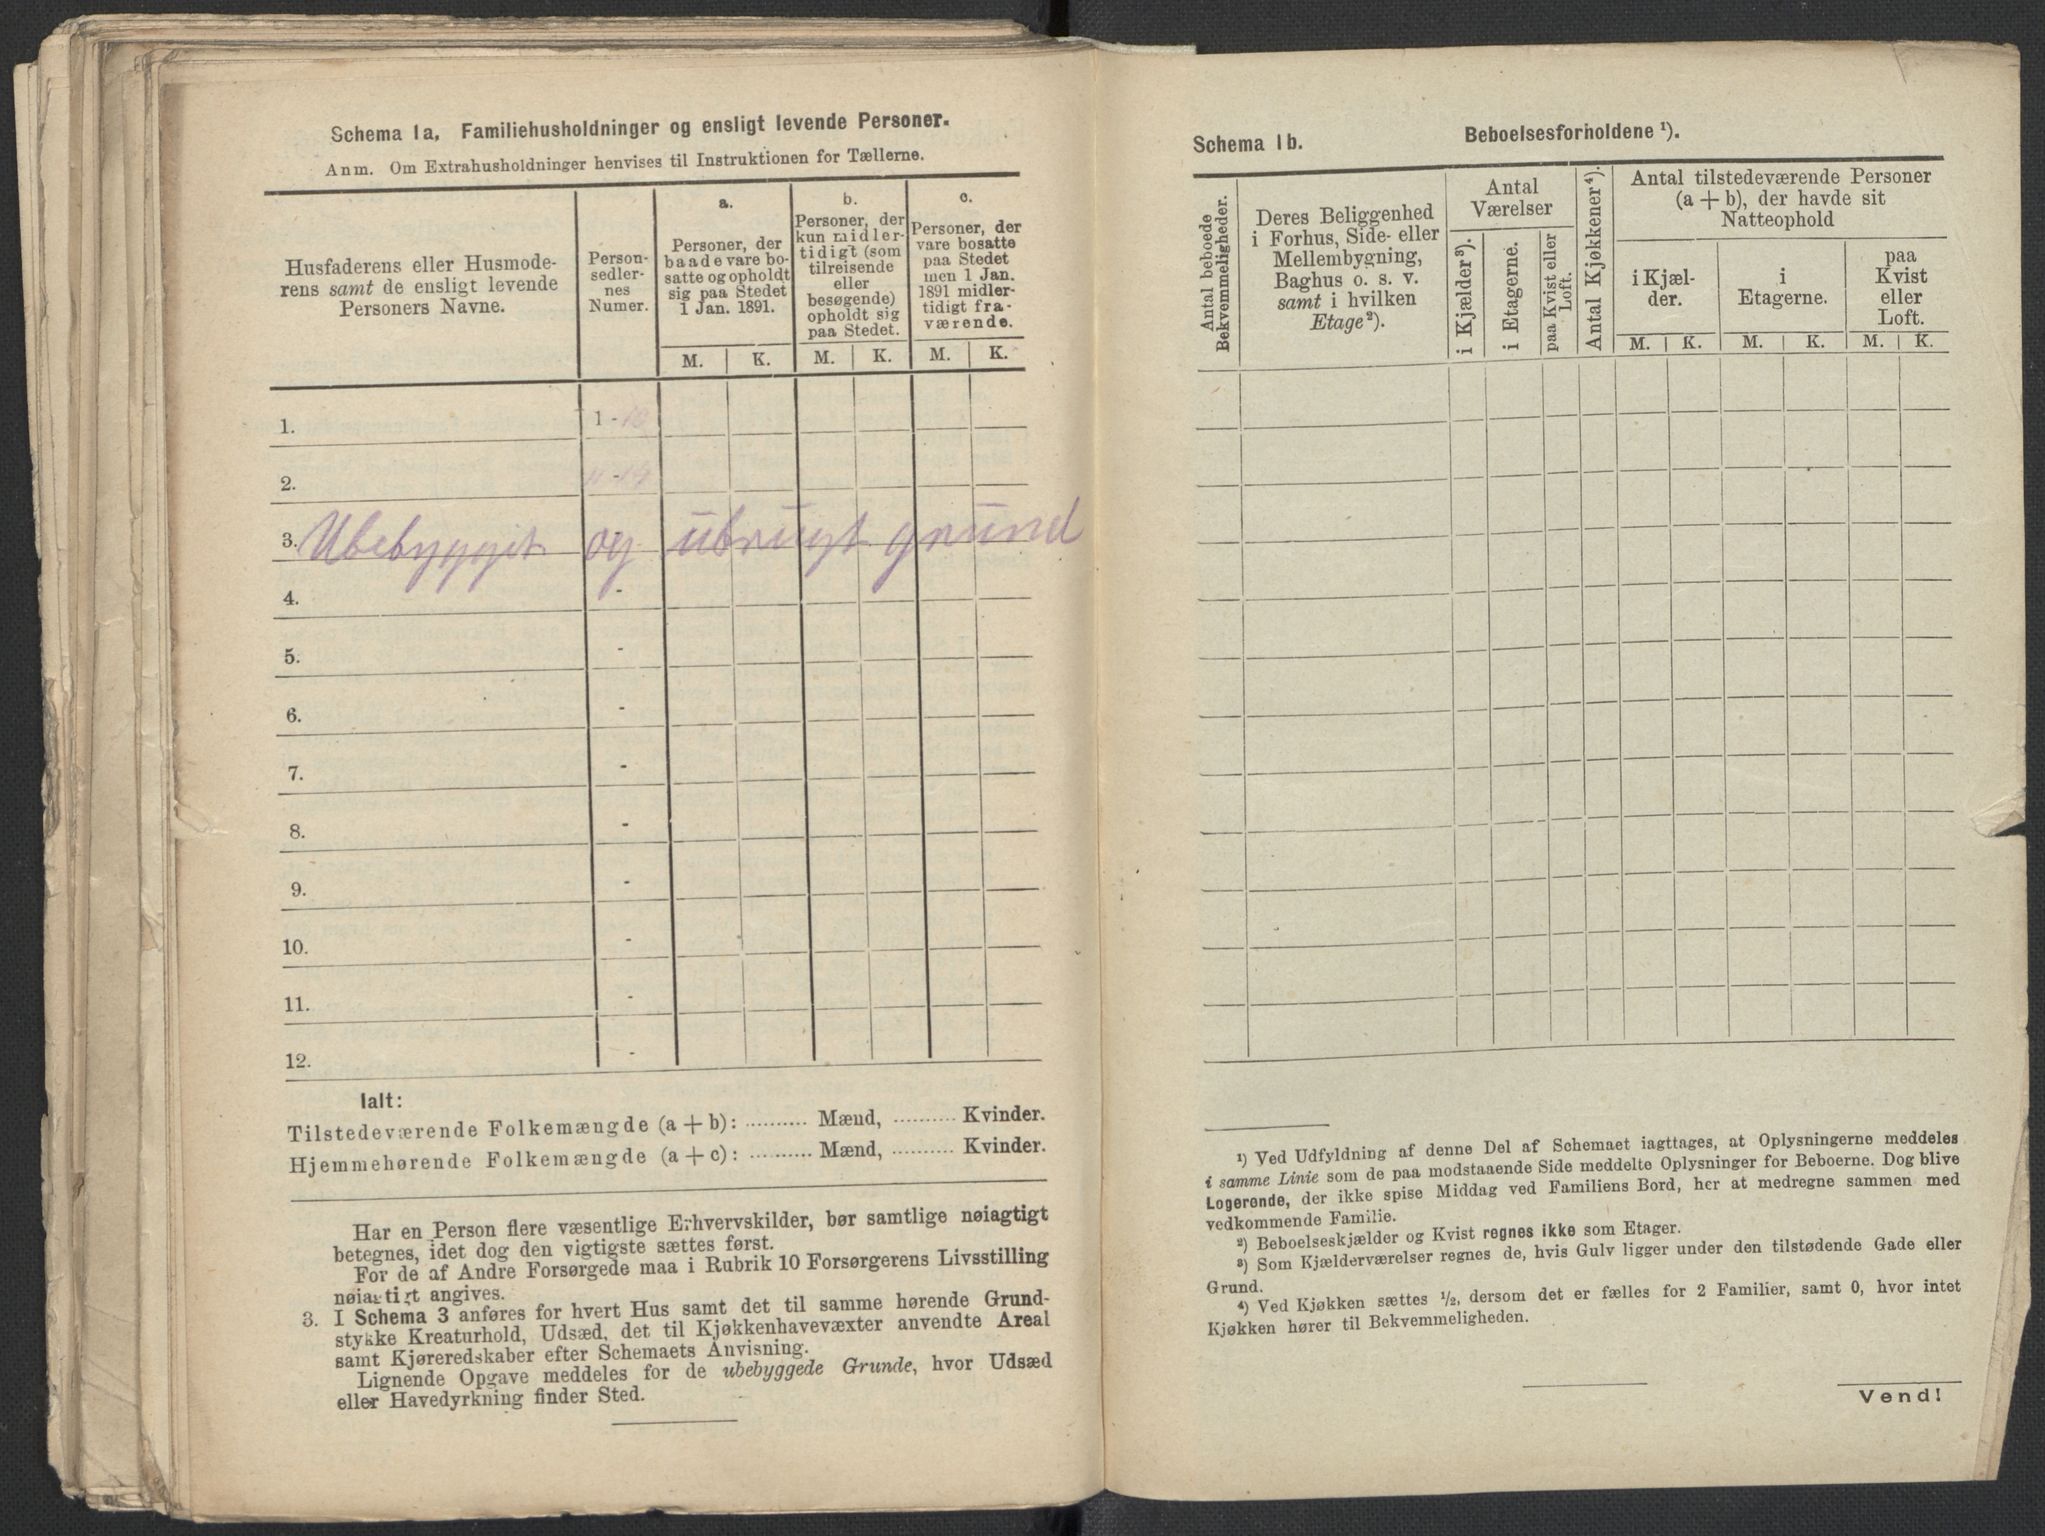 Schema 1a, Familiehusholdninger og ensligt levende Personer.
Anm. Om Extrahusholdninger henvises til Instruktionen for Tællerne.
Husfaderens eller Husmode-
rens samt de ensligt levende
Personers Navne.
Person-
sedler-
nes
Numer.
a.
Personer, der
baade vare bo-
satte og opholdt
sig paa Stedet
1 Jan. 1891.
b.
Personer, der
kun midler-
tidigt (som
tilreisende
eller
besøgende)
opholdt sig
paa Stedet.
c.
Personer, der
vare bosatte
paa Stedet
men 1 Jan.
1891 midler-
tidigt fra-
værende.
M. K. M. K. M. K.
1. 1 - 10
2. 11 - 14
3. Ubebygget og ubrugt grund
4. -
5. -
6. -
7. -
8. -
9. -
10. -
11. -
12. -
Ialt:
Tilstedeværende Folkemængde (a + b): .......... Mænd, .......... Kvinder.
Hjemmehørende Folkemængde (a + c): .......... Mænd, .......... Kvinder.
Har en Person flere væsentlige Erhvervskilder, bør samtlige nøiagtigt
betegnes, idet dog den vigtigste sættes først.
For de af Andre Forsørgede maa i Rubrik 10 Forsørgerens Livsstilling
nøiagtigt angives.
3. I Schema 3 anføres for hvert Hus samt det til samme hørende Grund-
stykke Kreaturhold, Udsæd, det til Kjøkkenhavevæxter anvendte Areal
samt Kjøreredskaber efter Schemaets Anvisning.
Lignende Opgave meddeles for de ubebyggede Grunde, hvor Udsæd
eller Havedyrkning finder Sted.
Schema 1b. Beboelsesforholdene ¹).
Antal beboede
Bekvemmeligheder.
Deres Beliggenhed
i Forhus, Side- eller
Mellembygning,
Baghus o. s. v.
samt i hvilken
Etage²).
Antal
Værelser
i Kjælder³).
i Etagerne.
paa Kvist eller
Loft.
Antal Kjøkkener⁴).
Antal tilstedeværende Personer
(a + b), der havde sit
Natteophold
i Kjæl-
der.
i
Etagerne.
paa
Kvist
eller
Loft.
M. K. M. K. M. K.
¹) Ved Udfyldning af denne Del af Schemaet iagttages, at Oplysningerne meddeles
i samme Linie som de paa modstaaende Side meddelte Oplysninger for Beboerne. Dog blive
Logerende, der ikke spise Middag ved Familiens Bord, her at medregne sammen med
vedkommende Familie.
²) Beboelseskjælder og Kvist regnes ikke som Etager.
³) Som Kjælderværelser regnes de, hvis Gulv ligger under den tilstødende Gade eller
Grund.
⁴) Ved Kjøkken sættes ½, dersom det er fælles for 2 Familier, samt 0, hvor intet
Kjøkken hører til Bekvemmeligheden.
Vend!